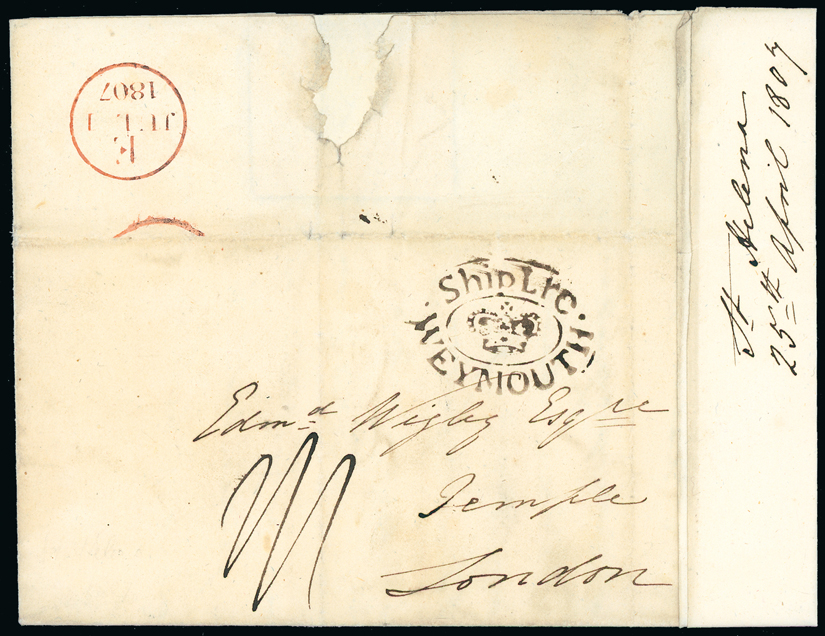 E
JUL 1
1807
Ship Lre
WEYMOUTH
Edmd. Wigley Esqre
Temple
London
St Helena
25th April 1807